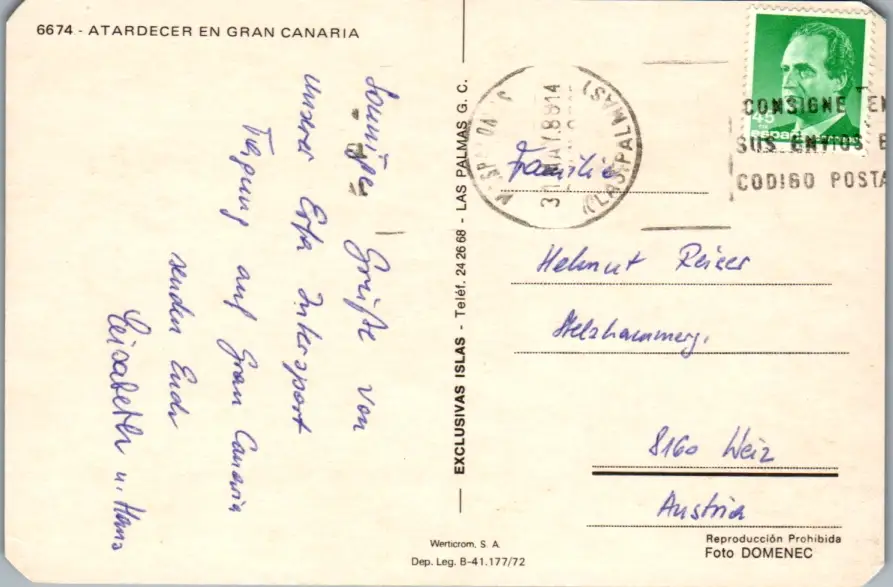 6674 - ATARDECER EN GRAN CANARIA
Sonnige Grüße von
unserer Erfa Intersport
Tagung auf Gran Canaria
senden Euch
Elisabeth u. Hans
EXCLUSIVAS ISLAS - Teléf. 24 26 68 - LAS PALMAS G. C.
(LAS PALMAS)
45
españa
CONSIGNE EN
SUS ENVIOS E
CODIGO POSTA
Familie
Helmut Reiser
Stelzhammerg.
8160 Weiz
Austria
Werticrom, S. A.
Dep. Leg. B-41.177/72
Reproducción Prohibida
Foto DOMENEC